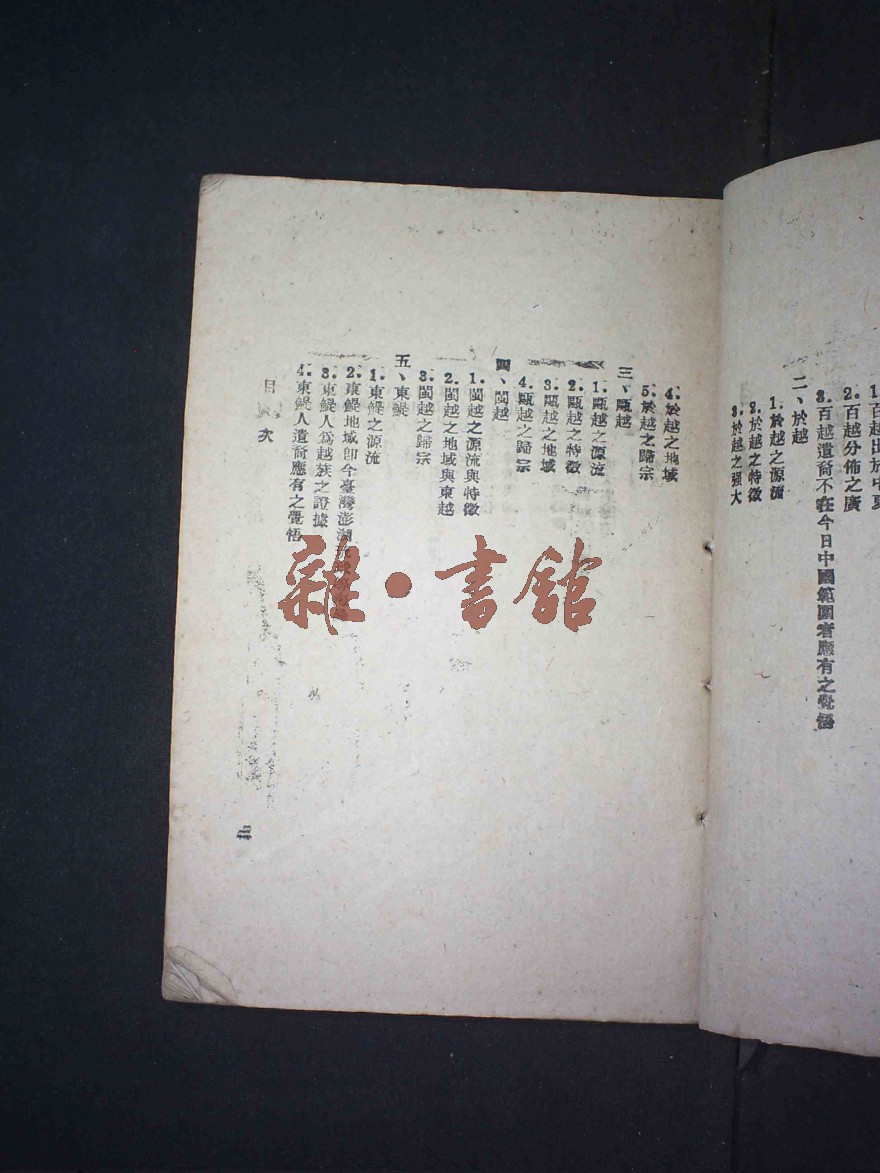 1. 百越出於中夏
2. 百越分佈之廣
3. 百越遺裔不在今日中國範圍者應有之覺悟
二、於越
1. 於越之源流
2. 於越之特徵
3. 於越之强大
4. 於越之地域
5. 於越之歸宗
三、甌越
1. 甌越之源流
2. 甌越之特徵
3. 甌越之地域
4. 甌越之歸宗
四、閩越
1. 閩越之源流與特徵
2. 閩越之地域與東越
3. 閩越之歸宗
五、東鯷
1. 東鯷之源流
2. 東鯷地域即今臺灣澎湖
3. 東鯷人爲越族之證據
4. 東鯷人遺裔應有之覺悟
目 次
雜·書館